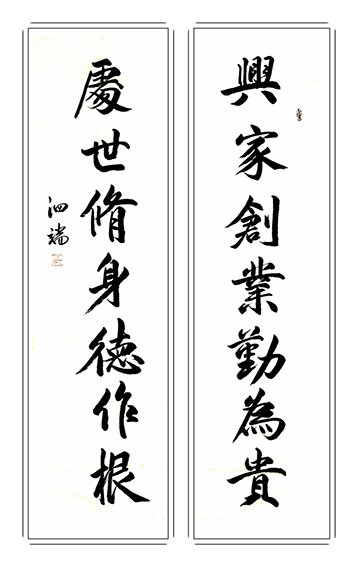 興家創業勤為貴
處世脩身德作根
泗端